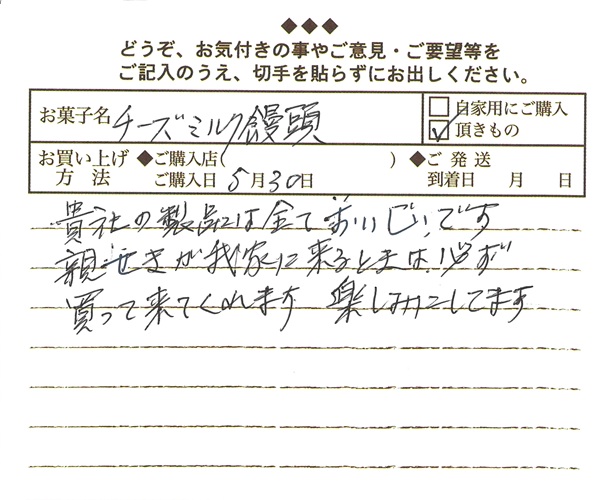 ◆◆◆
どうぞ、お気付きの事やご意見・ご要望等を
ご記入のうえ、切手を貼らずにお出しください。
お菓子名 チーズミルク饅頭
□自家用にご購入
☑頂きもの
お買い上げ方法 ◆ご購入店( ) ◆ご発送
ご購入日 5月30日 到着日 月 日
貴社の製品は全ておいしいです
親せきが我家に来るときは必ず
買って来てくれます 楽しみにしてます